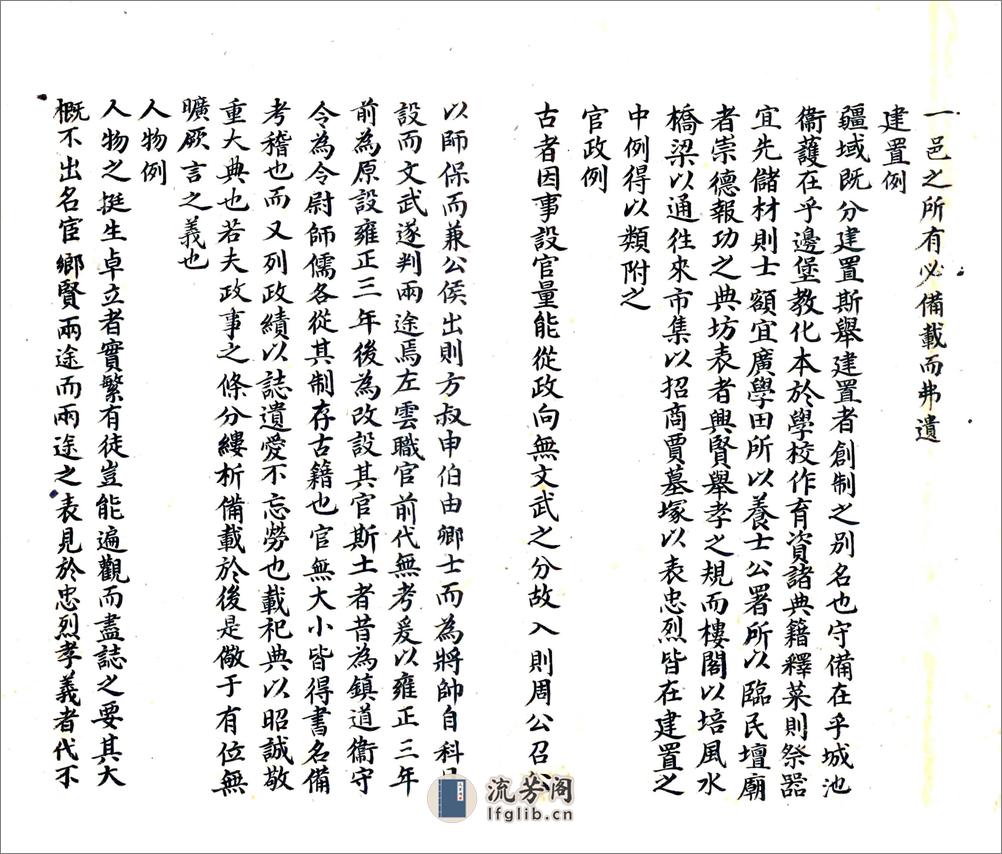 一邑之所有必備載而弗遺
建置例
疆域既分建置斯舉建置者創制之别名也守備在乎城池
衞護在乎邊堡教化本於學校作育資諸典籍釋菜則祭器
宜先儲材則士額宜廣學田所以養士公署所以臨民壇廟
者崇德報功之典坊表者興賢舉孝之規而樓閣以培風水
橋梁以通往來市集以招商賈墓塚以表忠烈皆在建置之
中例得以類附之
官政例
古者因事設官量能從政向無文武之分故入則周公召
以師保而兼公侯出則方叔申伯由卿士而為將帥自科
設而文武遂判兩途焉左雲職官前代無考爰以雍正三年
前為原設雍正三年後為改設其官斯土者昔為鎮道衞守
今為令尉師儒各從其制存古籍也官無大小皆得書名備
考稽也而又列政績以誌遺愛不忘勞也載祀典以昭誠敬
重大典也若夫政事之條分縷析備載於後是儆于有位無
曠厥言之義也
人物例
人物之挺生卓立者實繁有徒豈能遍觀而盡誌之要其大
概不出名宦鄉賢兩途而兩途之表見於忠烈孝義者代不
流芳阁
lfglib.cn